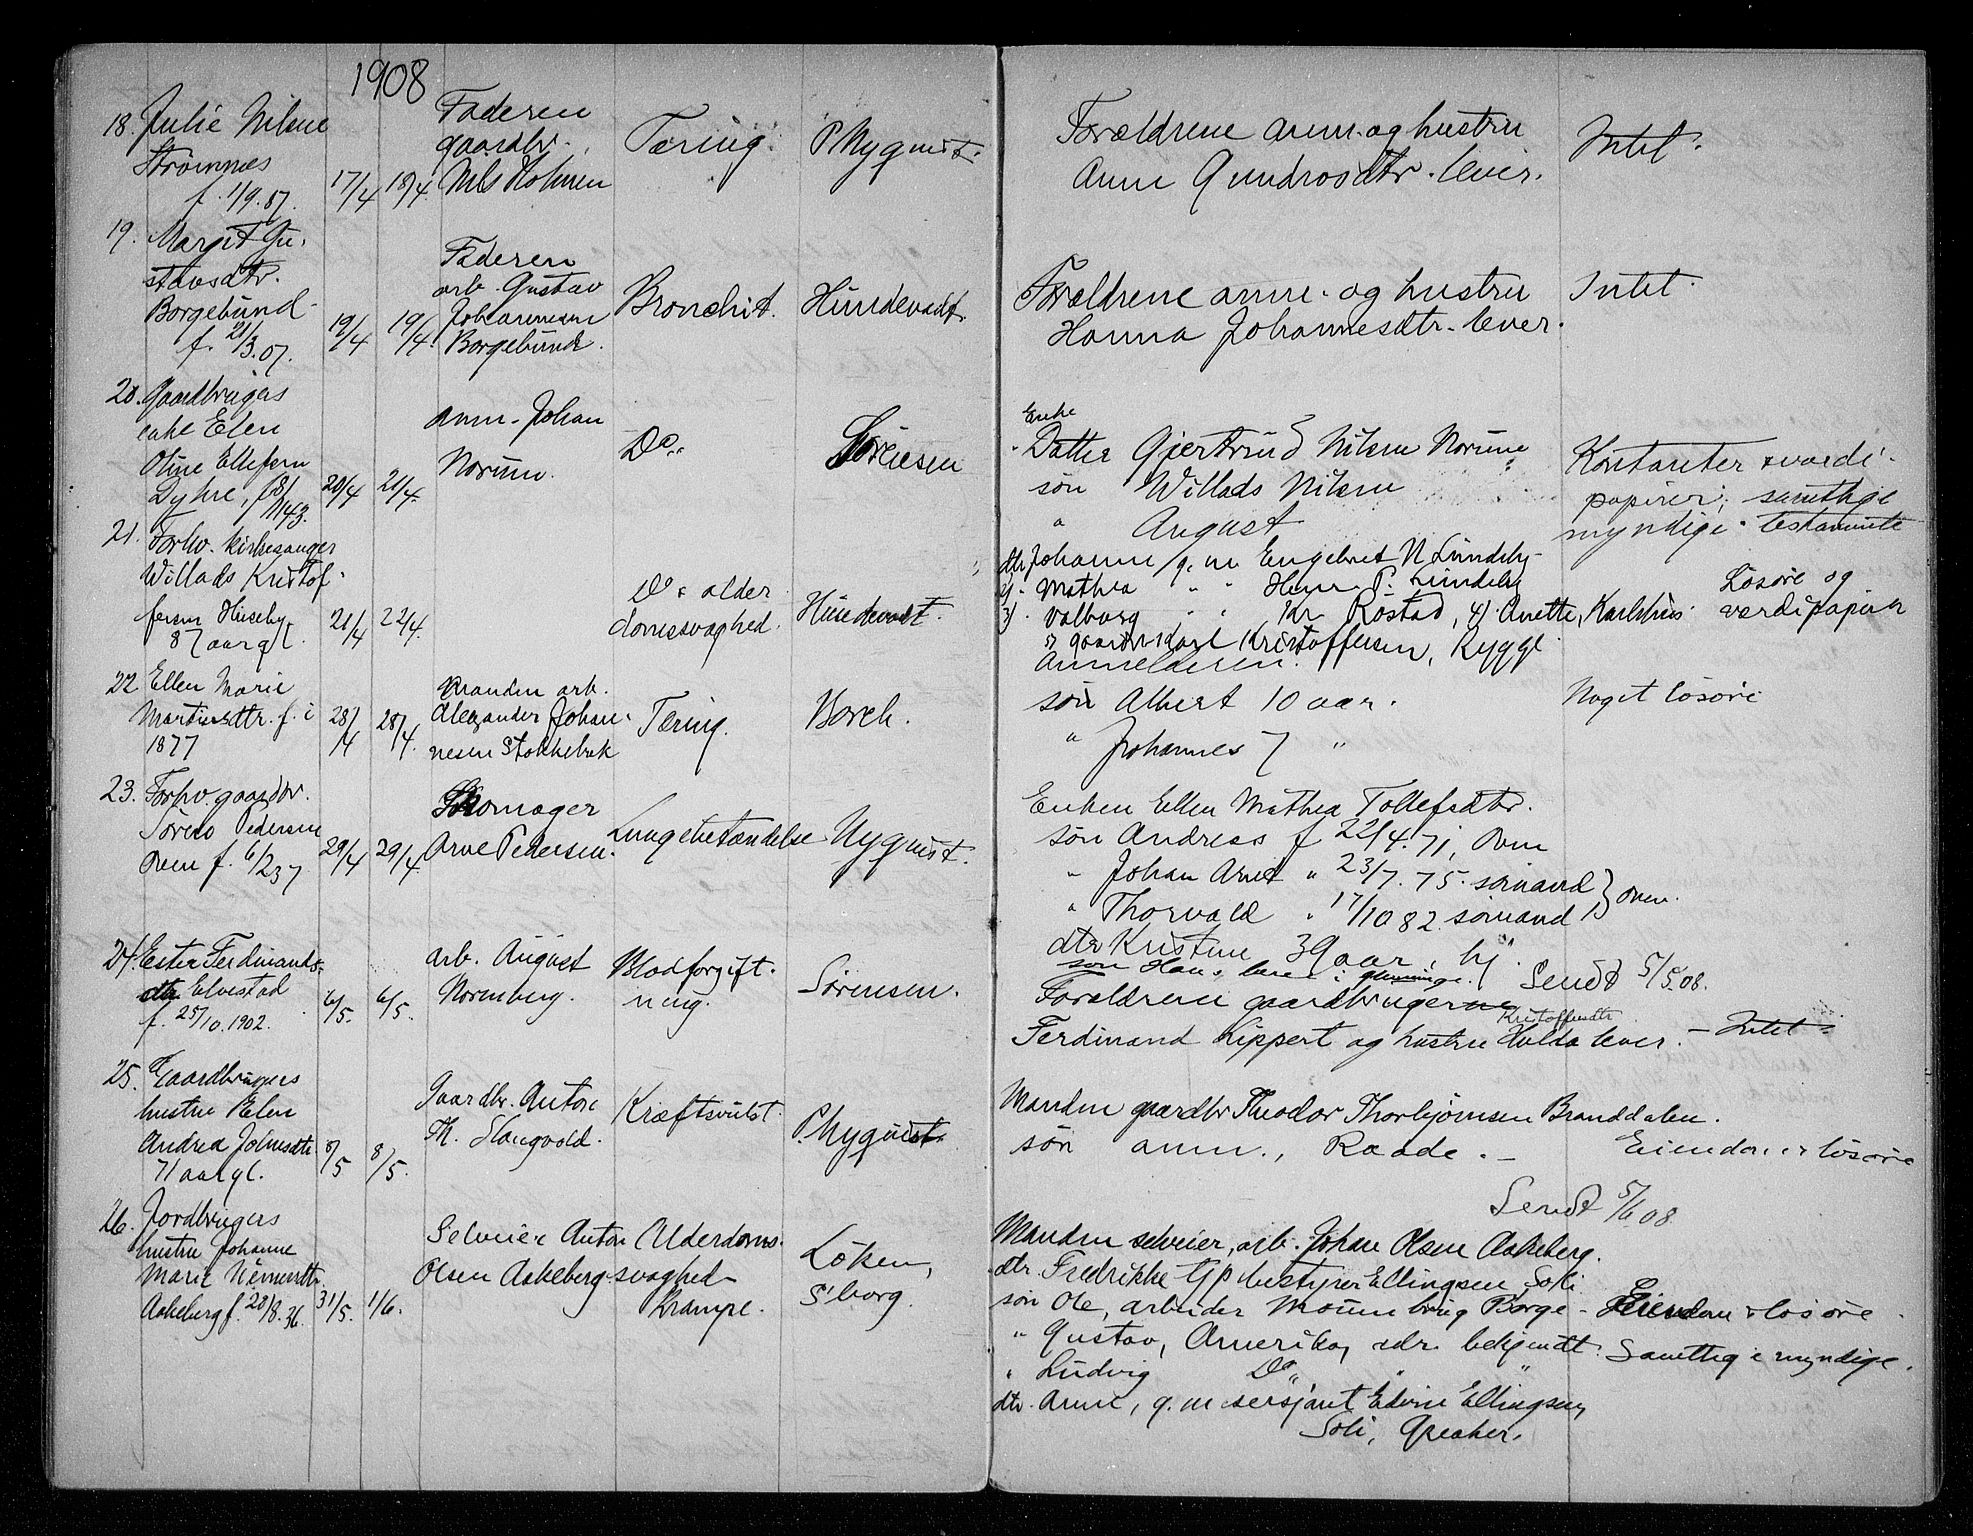 1908
18. Julie Nilsne
Strömnæs
f. 1/9.87.
17/4 18/4.
Faderen
gaardbr.
Nils Holmen
Tæring.
P Nyquist.
Forældrene anm. og hustru
Anne Gundrosdtr. lever.
Intet.
19. Margit Gu-
stavsdtr.
Borgebund
f. 21/3.07.
19/4 19/4.
Faderen
arb. Gustav
Johannesen
Borgebund.
Bronchit.
Hundevadt.
Forældrene anm. og hustru
Hanna Johannesdtr. lever.
Intet.
20. Gaardbrugers
enke Elen
Oline Ellefsen
Dyhre, f. 8/11 43.
20/4 21/4.
anm. Johan
Norum.
Do.
Sörensen
Enke
Datter Gjertrud Nilsen Norum
sön Willads Nilsen
" August
Kontanter & værdi-
papirer; samtlige
myndige. testamente
21. Forhv. kirkesanger
Willads Kristof-
fersen Huseby
87 aar gl.
21/4 22/4.
Do & alder
domssvaghed.
Hundevadt.
dtr. Johanne, g. m. Engebret N. Lundeby
2) Mathea " Hans P. Lundeby
3) Valborg " " Kr Rostad, 4) Anette, Karlshus.
5 gaardbr. Karl Kristoffersen, Rygge
Anmelderen.
Lösöre og
værdipapirer
22 Ellen Marie
Martinsdtr. f. i
1877
28/4 28/4.
Manden arb.
Alexander Johan-
nesen Stokkebæk
Tæring.
Borch.
sön Albert 10 aar.
" Johannes 7 "
Noget lösöre
23. Forhv. gaardbr.
Sören Pedersen
Oven f. 6/2 37
29/4 29/4
Skomager
Arne Pedersen.
Lungebetændelse
Nyquist.
Enken Ellen Mathea Tollefsdtr.
sön Andreas f 22/4. 71, Oven
" Johan Arnt " 23/7. 75. sömand } Oven.
" Thorvald " 17/10 82. sömand
dtr Kristine 39 aar, hj.
sön Hans, lærer i Glemminge.
Sendt 5/5.08.
24. Ester Ferdinands-
dtr Elvestad
f. 25/10. 1902.
6/5. 6/5.
arb. August
Nornberg.
Blodforgift-
ning.
Sörensen.
Forældrene gaardbrugerne
Kristoffersdtr
Ferdinand Lippert og hustru Hulda lever. — Intet
25. Gaardbrugers
hustru Elen
Andrea Johnsdtr.
71 aar gl.
8/5 8/5.
Gaardbr. Anton
Th. Haugvold.
Kræftsvulst.
P. Nyquist.
Manden gaardbr Theodor Thorbjörnsen Branddalen.
sön anm., Raade. —
Eiendom & lösöre
Sendt 5/6 08
26. Jordbrugers
hustru Johanne
Marie Simensdtr.
Aakeberg f. 20/8. 36.
31/5. 1/6.
Selveier Anton
Olsen Aakeberg
Alderdoms-
svaghed
Krampe.
Löken,
S'borg.
Manden selveier, arb. Johan Olsen Aakeberg.
dtr. Fredrikke g. bestyrer Ellingsen, Soli
sön Ole, arbeider Moum brug Borge
" Gustav, Amerika, adr. bekjendt.
" Ludvig Do " "
dtr. Anne, g. m sersjant Edvin Ellingsen,
Soli, Greaker.
Eiendom & lösöre
Samtlige myndige.